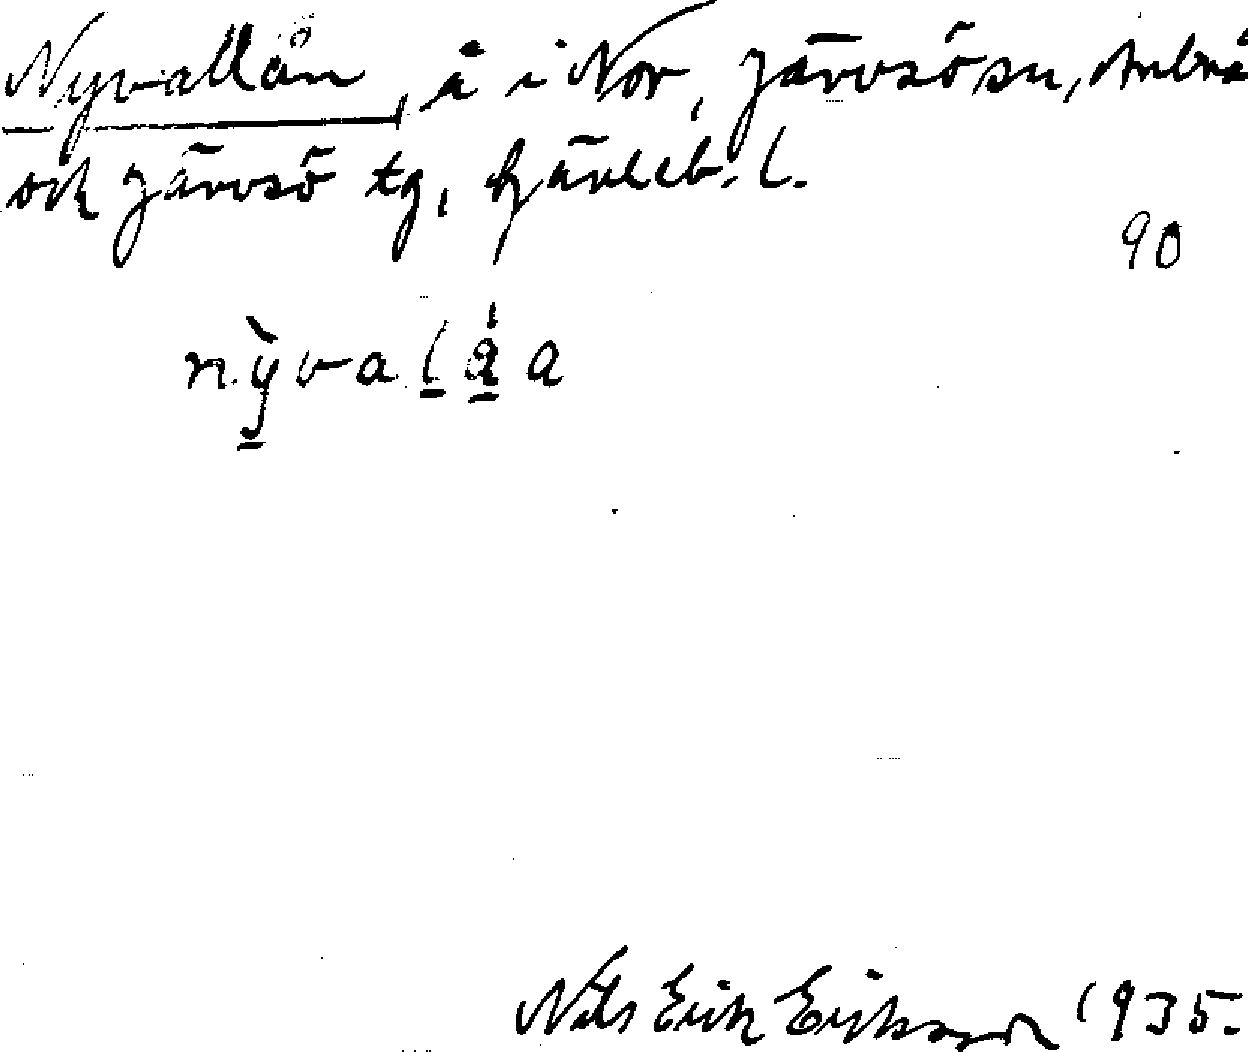 Nyvallån, å i Nor, Järvsö sn, Arbrå
och Järvsö tg, Gävleb. l.
90
nỳvalåa
Nils Erik Eriksson 1935.